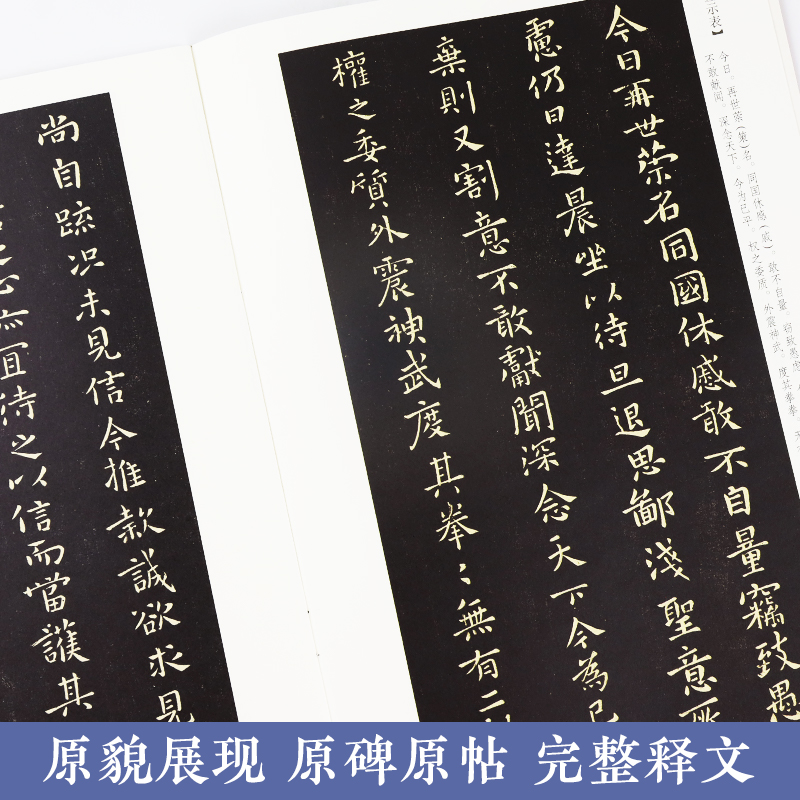 示表】
今日。再世荣（荣）名，同国休感（戚）。敢不自量，窃致愚虑，
不敢献闻。深念天下，今为已平，权之委质，外震神武，度其拳拳，
今日再世荣名同國休慼敢不自量竊致愚
慮仍日達晨坐以待旦退思鄙淺聖意所
棄則又割意不敢獻聞深念天下今為已
權之委質外震神武度其拳〻無有二
尚自疏况未見信今推款誠欲求見
宜待之以信而當護其
原貌展现 原碑原帖 完整释文